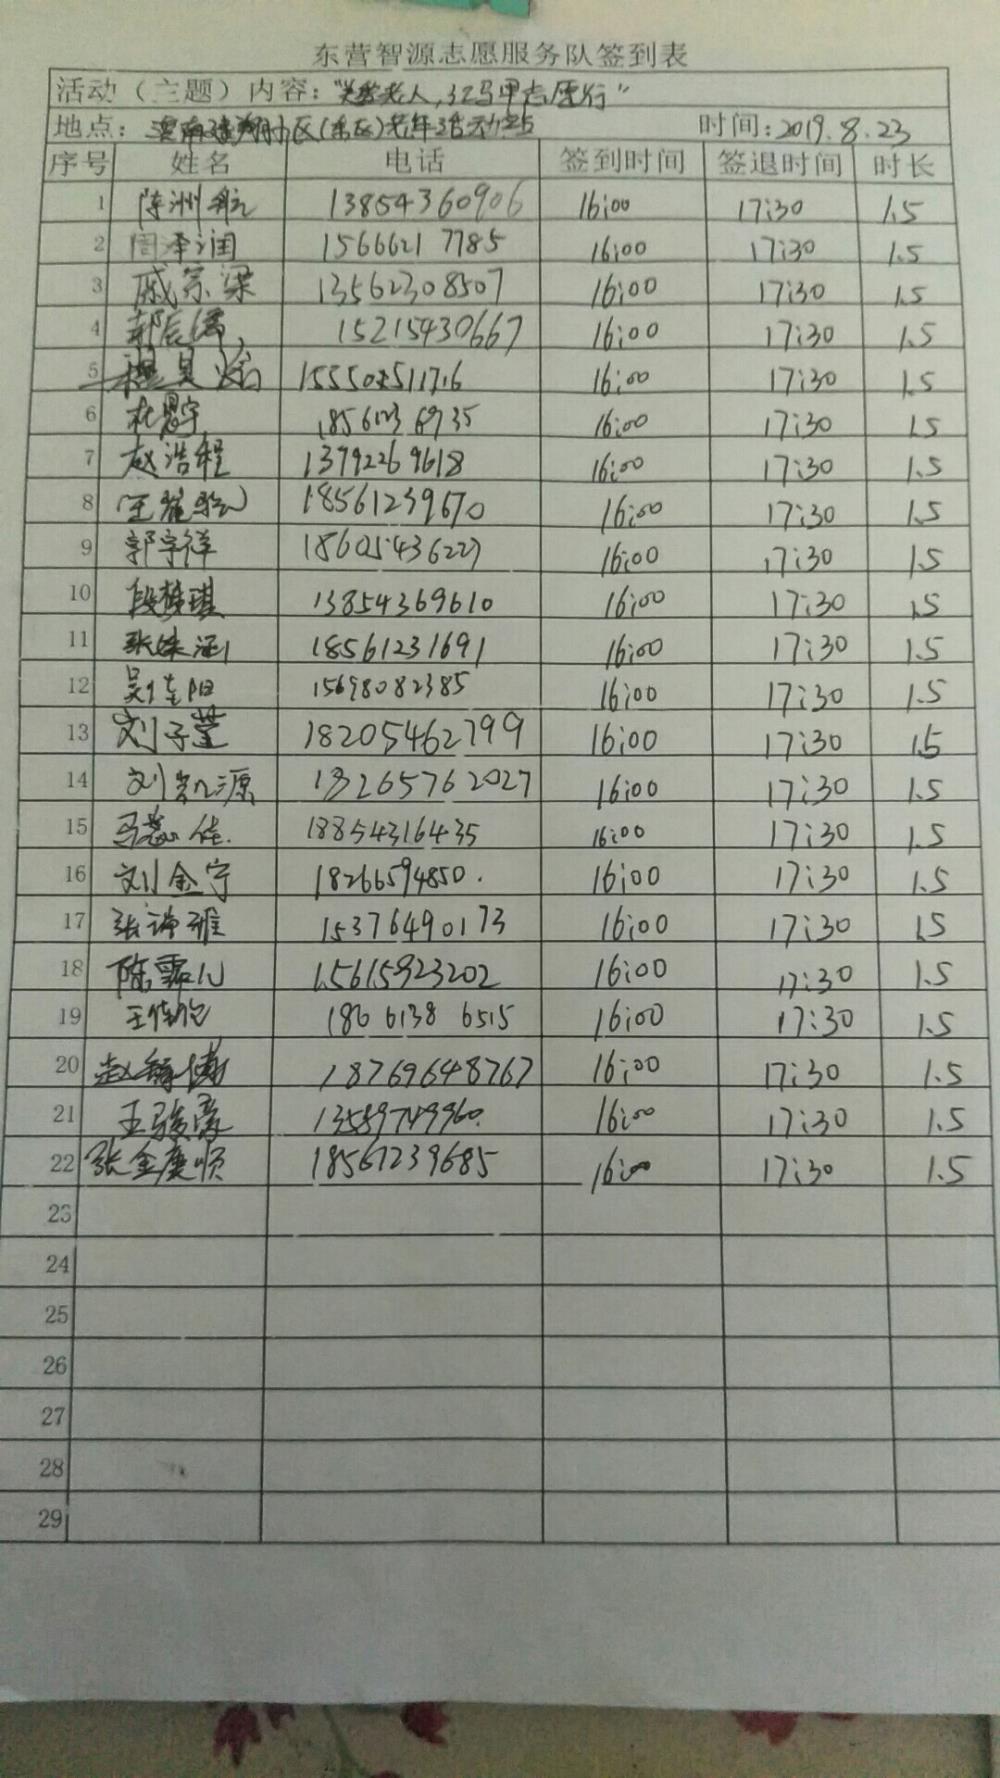 东营智源志愿服务队签到表
活动（主题）内容："关爱老人,红马甲志愿行"
地点: 小区(东区)老年活动站 时间:2019.8.23
序号 姓名 电话 签到时间 签退时间 时长
1 陈洲航 13854360906 16:00 17:30 1.5
2 周泽润 15666217785 16:00 17:30 1.5
3 戚宗梁 13562308507 16:00 17:30 1.5
4 15215430667 16:00 17:30 1.5
5 16:00 17:30 1.5
6 杜思宇 16:00 17:30 1.5
7 赵浩程 13792269618 16:00 17:30 1.5
8 18561239670 16:00 17:30 1.5
9 郭宇祥 18605436227 16:00 17:30 1.5
10 段梦琪 13854369610 16:00 17:30 1.5
11 18561231691 16:00 17:30 1.5
12 吴佳阳 15698082385 16:00 17:30 1.5
13 刘子萱 18205462799 16:00 17:30 1.5
14 刘凯源 18265762027 16:00 17:30 1.5
15 马蕊佳. 18854316435 16:00 17:30 1.5
16 刘金宁 18266594850. 16:00 17:30 1.5
17 张诗雅 15376490173 16:00 17:30 1.5
18 陈霈儿 15615923202 16:00 17:30 1.5
19 186 6138 6515 16:00 17:30 1.5
20 18769648767 16:00 17:30 1.5
21 王骏豪 13589749960. 16:00 17:30 1.5
22 张金庚顺 18561239685 16:00 17:30 1.5
23
24
25
26
27
28
29